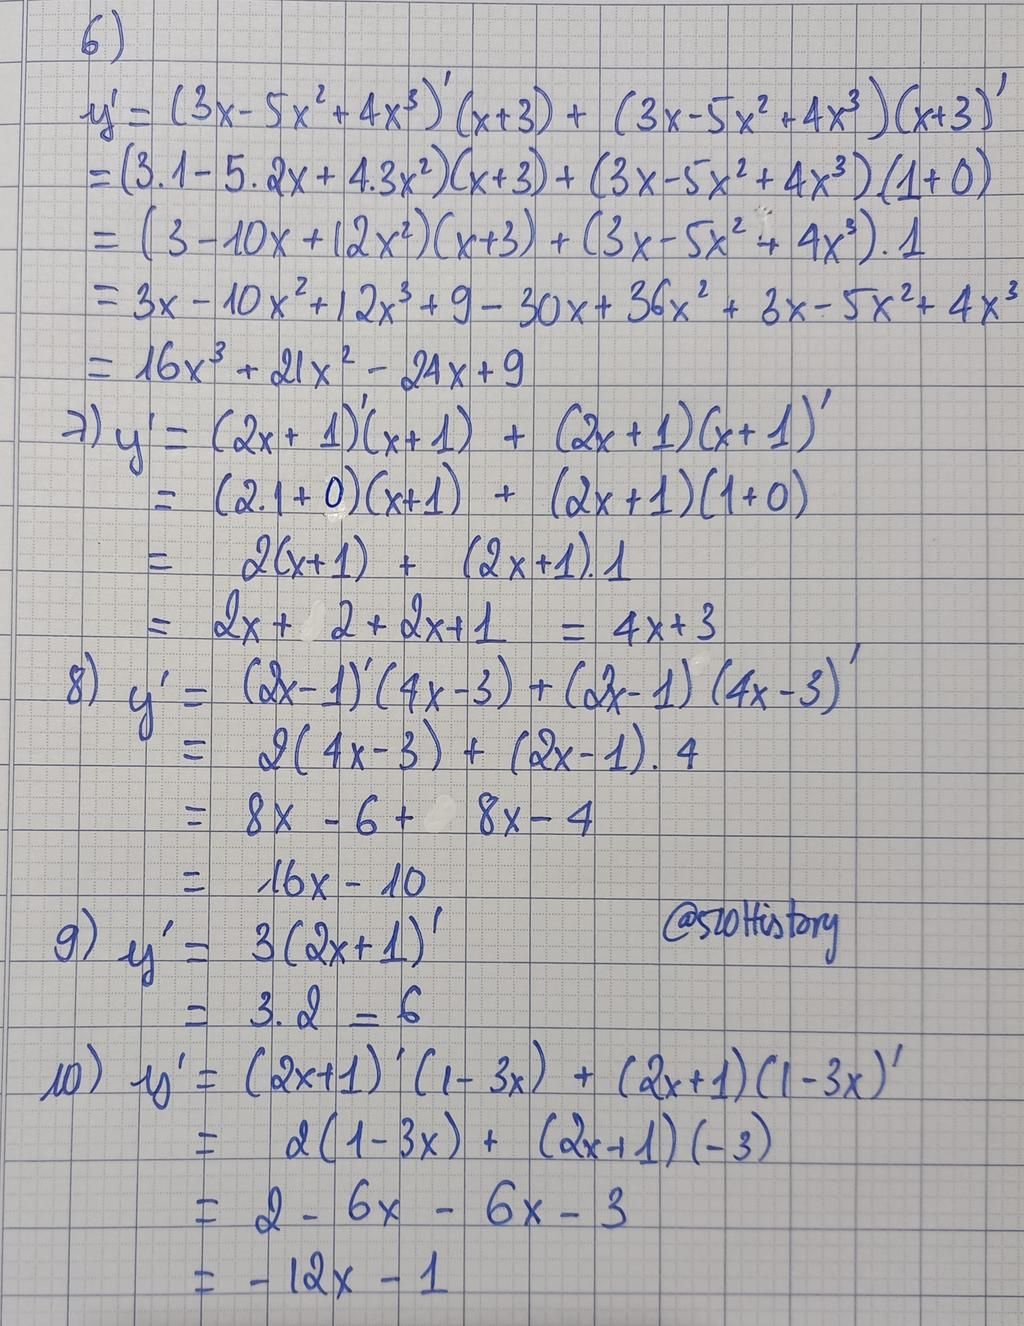 6)
y' = (3x - 5x² + 4x³)'(x+3) + (3x - 5x² + 4x³)(x+3)'
= (3.1 - 5.2x + 4.3x²)(x+3) + (3x - 5x² + 4x³).(1+0)
= (3 - 10x + 12x²)(x+3) + (3x - 5x² + 4x³).1
= 3x - 10x² + 12x³ + 9 - 30x + 36x² + 3x - 5x² + 4x³
= 16x³ + 21x² - 24x + 9
7) y' = (2x + 1)'(x+1) + (2x+1)(x+1)'
= (2.1 + 0)(x+1) + (2x+1)(1+0)
= 2(x+1) + (2x+1).1
= 2x + 2 + 2x+1 = 4x+3
8) y' = (2x-1)'(4x-3) + (2x-1)(4x-3)'
= 2(4x-3) + (2x-1).4
= 8x - 6 + 8x - 4
= 16x - 10
@520History
9) y' = 3(2x+1)'
= 3.2 = 6
10) y' = (2x+1)'(1-3x) + (2x+1)(1-3x)'
= 2(1-3x) + (2x+1)(-3)
= 2 - 6x - 6x - 3
= -12x - 1